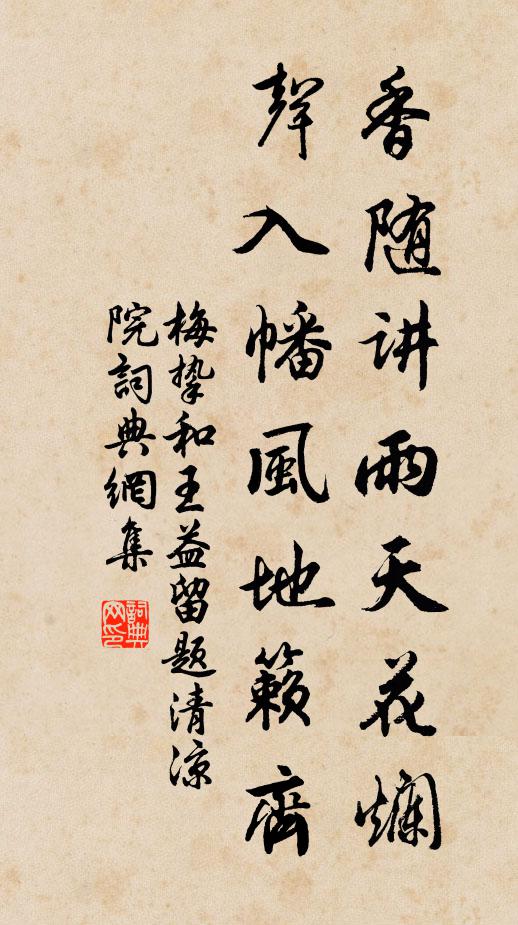 香随讲雨天花烂
声入幡風地籁齊
梅挚和王益留题清凉
院詞典網集
詞典网印